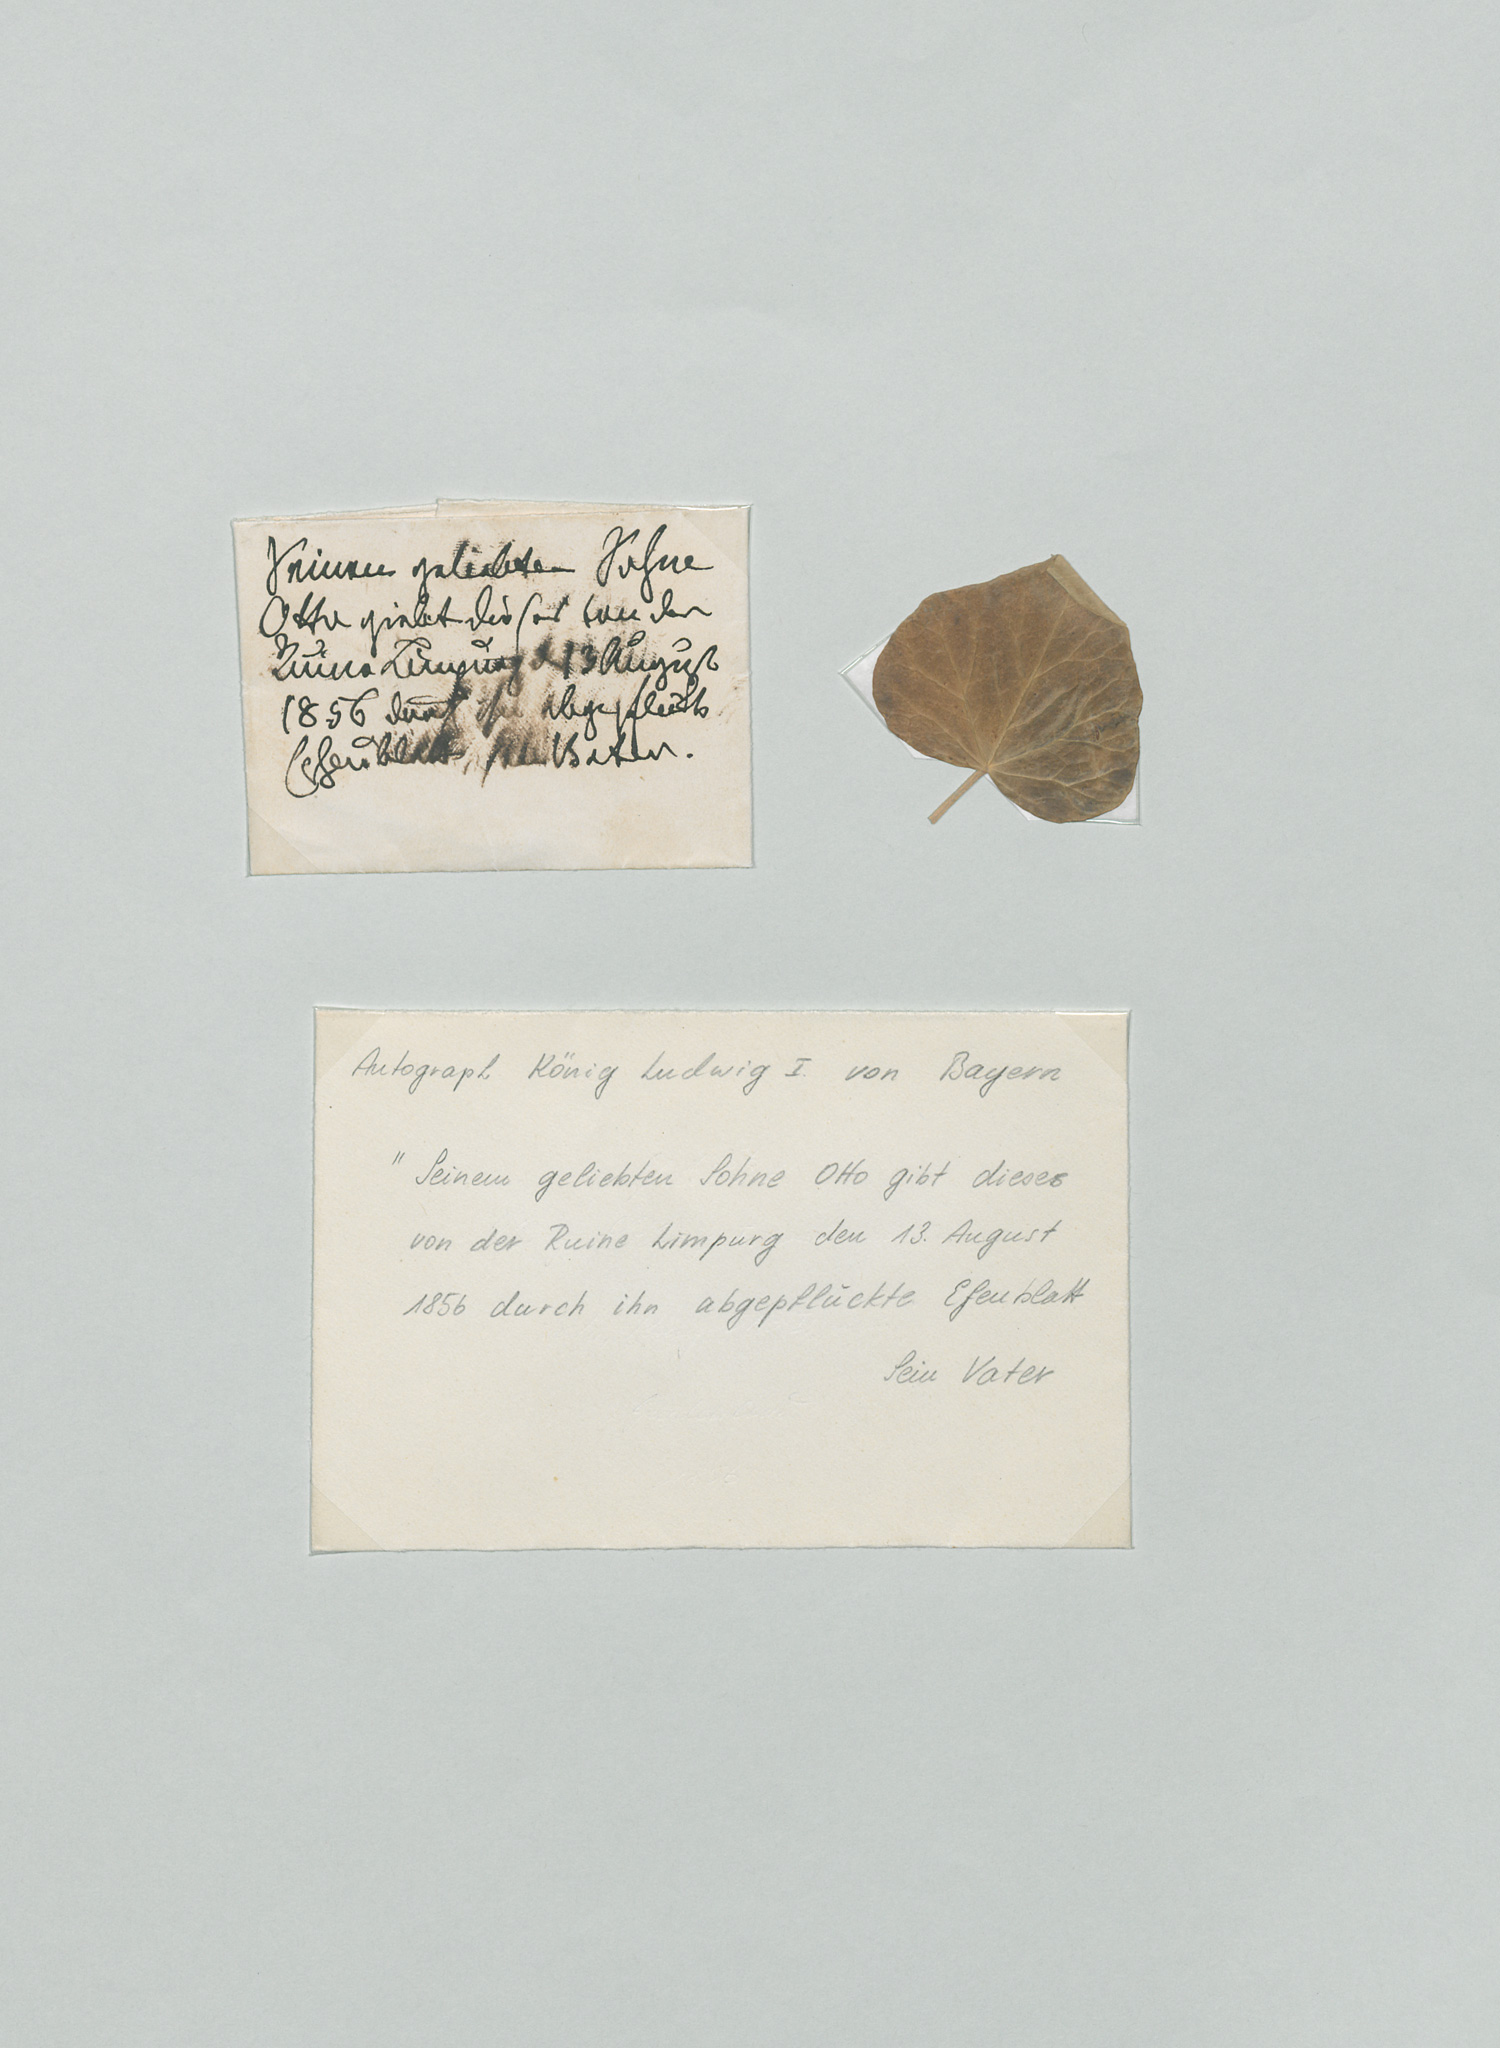 Seinem geliebten Sohne
Otto giebt dieses von der
Ruine Limpurg d 13 August
1856 durch ihn abgepflückte
Epheublatt, sein Vater.
Autograph König Ludwig I. von Bayern
" Seinem geliebten Sohne Otto gibt dieses
von der Ruine Limpurg den 13. August
1856 durch ihn abgepflückte Efeublatt
Sein Vater